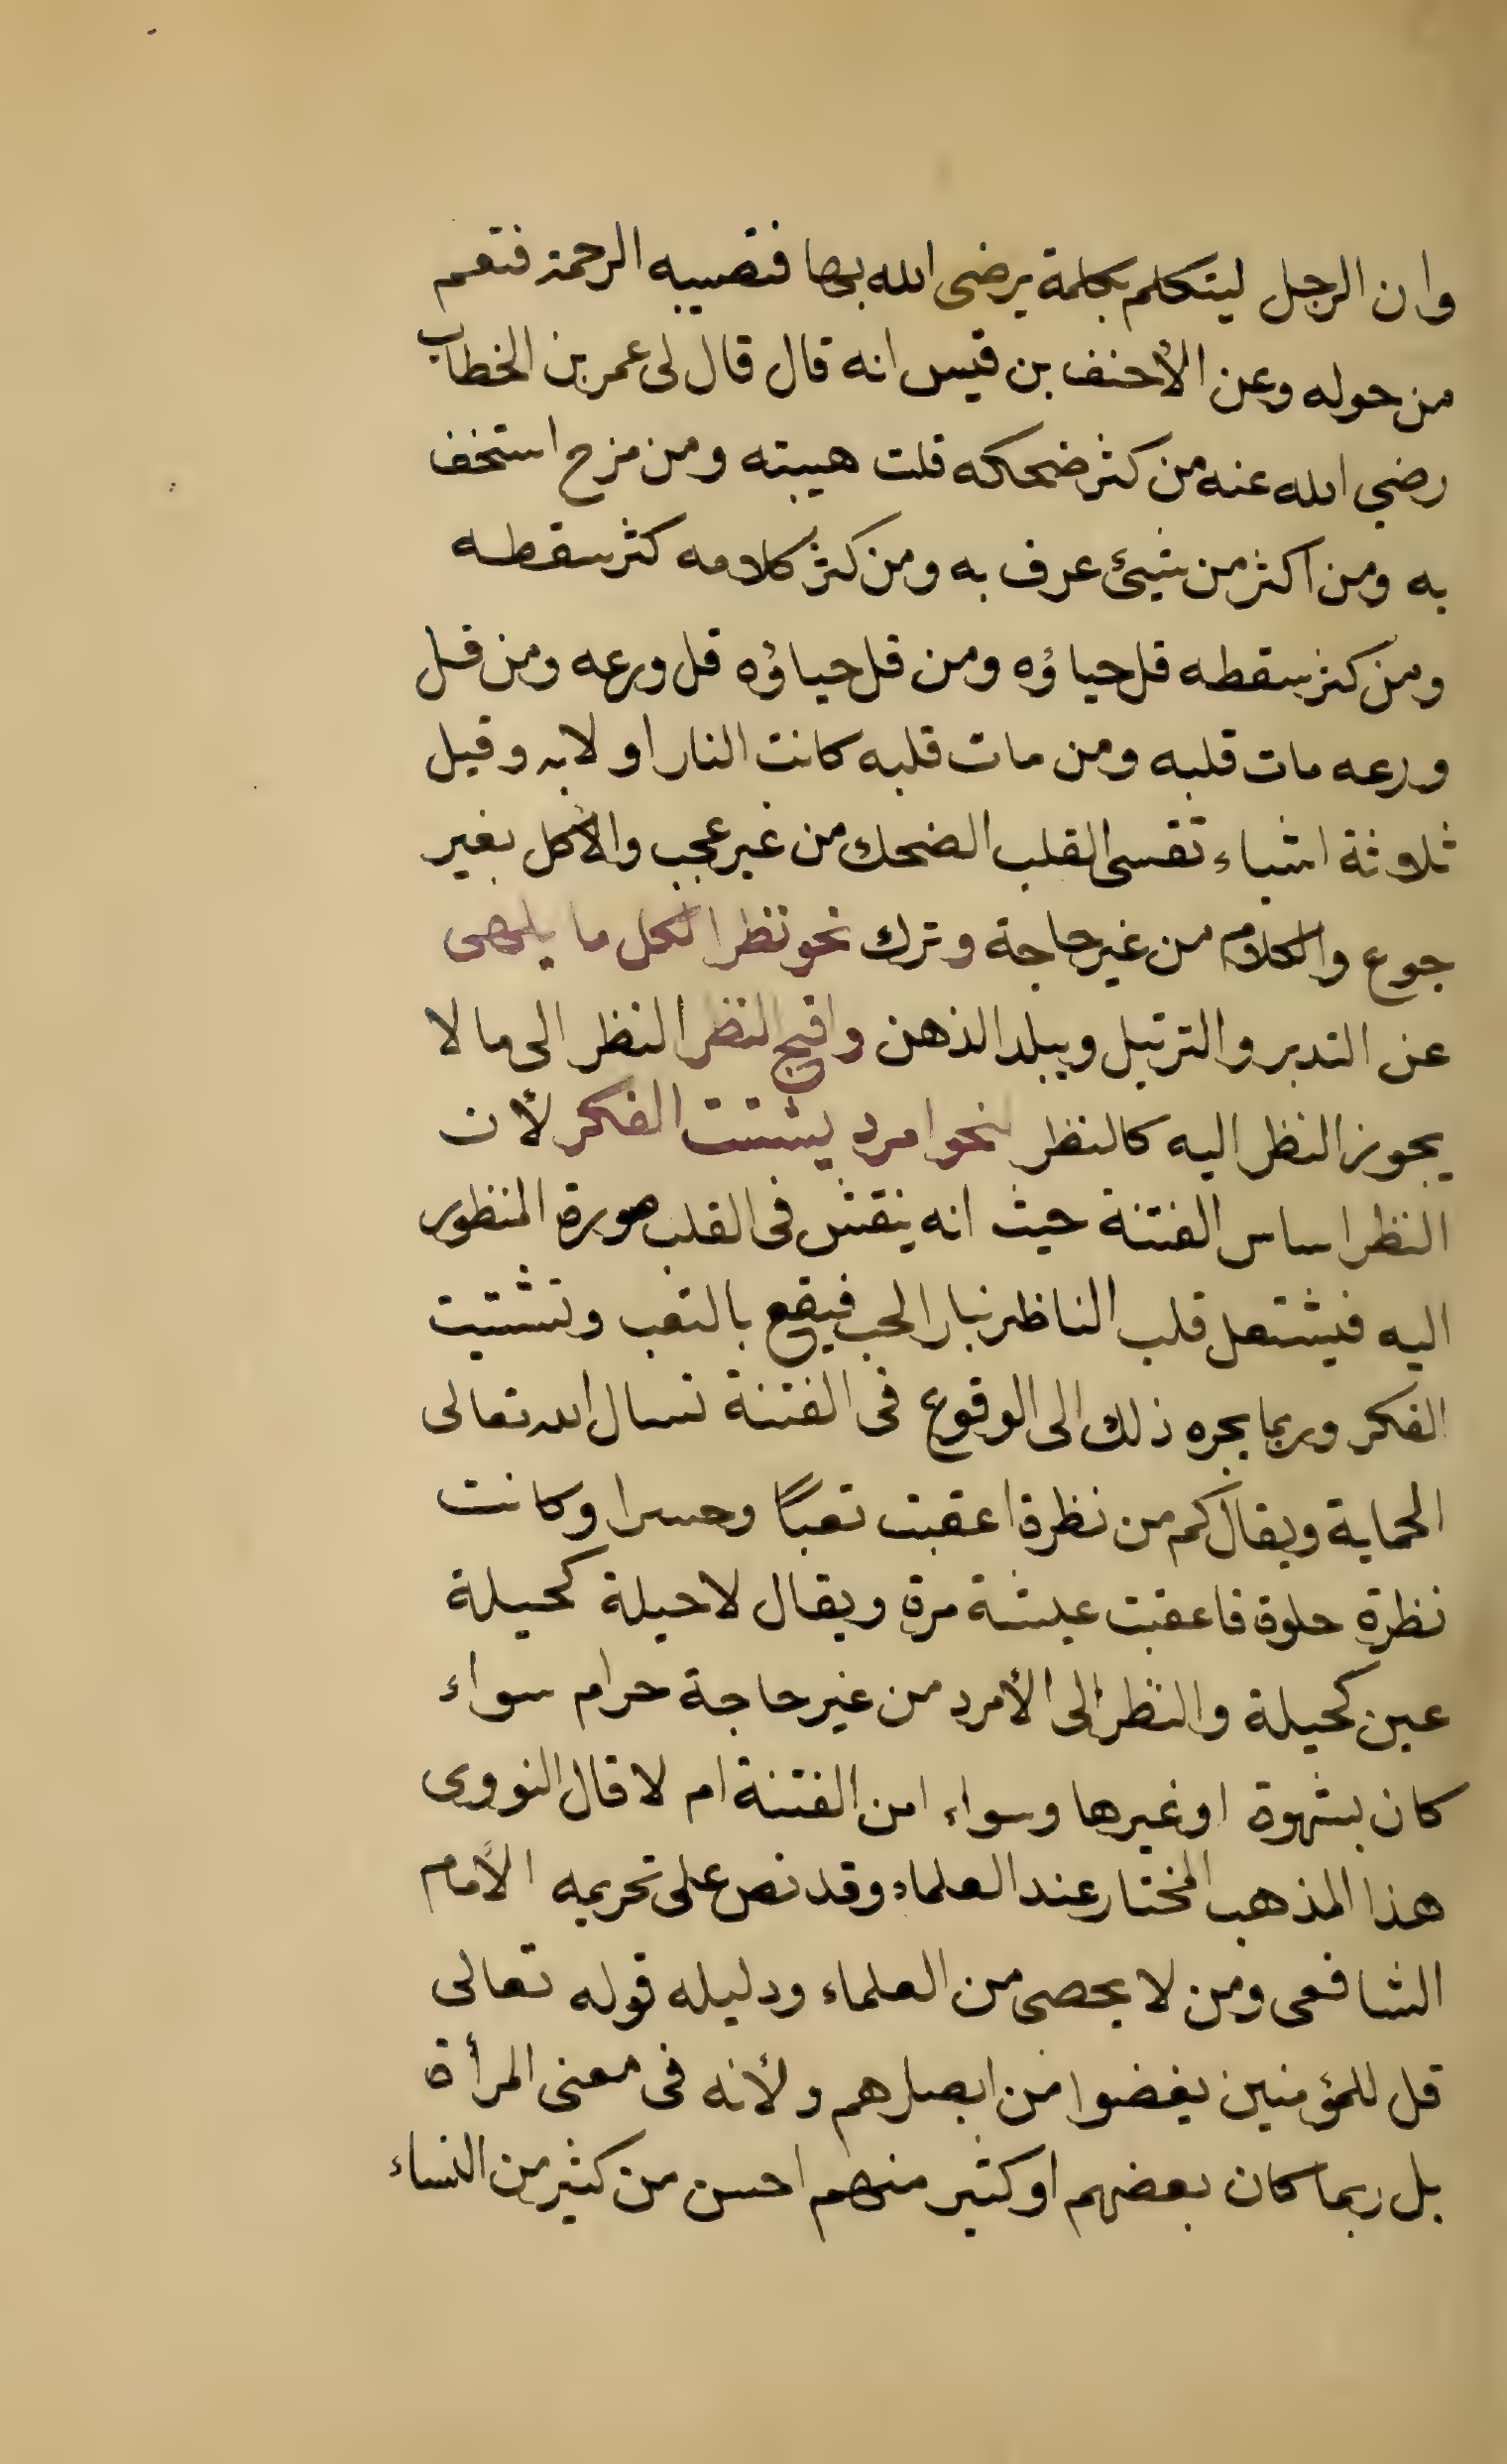 وان الرجل ليتكلم بكلمة يرضى الله بها فتصيبه الرحمة فتعم
من حوله وعن الأحنف بن قيس انه قال قال لى عمر بن الخطاب
رضي الله عنه من كثر ضحكه قلت هيبته ومن مزح استخف
به ومن اكثر من شيئ عرف به ومن كثر كلامه كثر سقطه
ومن كثر سقطه قل حياؤه ومن قل حياؤه قل ورعه ومن قل
ورعه مات قلبه ومن مات قلبه كانت النار اولا به وقيل
ثلاثة اشياء تقسى القلب الضحك من غير عجب والأكل بغير
جوع والكلام من غير حاجة وترك نحو نظر الكل ما يلهى
عن التدبر والترتيل ويبلد الذهن واقبح النظر النظر الى ما لا
يجوز النظر اليه كالنظر لنحو امرد يشتت الفكر لأن
النظر اساس الفتنة حيث انه ينقش فى القلب صورة المنظور
اليه فيشتعل قلب الناظر بنار الحب فيقع بالتعب وتشتيت
الفكر وربما يجره ذلك الى الوقوع فى الفتنة نسال الله تعالى
الحماية ويقال كم من نظرة اعقبت تعباً وحسرا وكانت
نظرة حلوة فاعقبت عيشة مرة ويقال لا حيلة كحيلة
عين كحيلة والنظر الى الأمرد من غير حاجة حرام سواء
كان بشهوة او غيرها وسواء امن الفتنة ام لا قال النووى
هذا المذهب المختار عند العلماء وقد نص على تحريمه الأمام
الشافعى ومن لا يحصى من العلماء ودليله قوله تعالى
قل للمؤمنين يغضوا من ابصارهم ولأنه فى معنى المرأة
بل ربما كان بعضهم او كثير منهم احسن من كثير من النساء